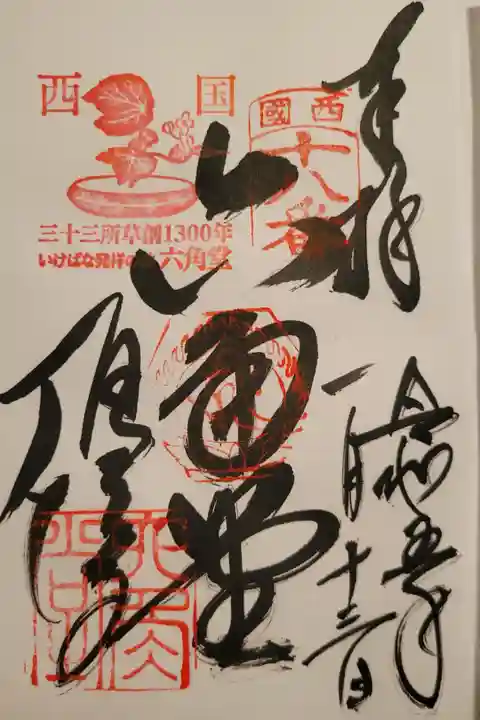 奉拝
令和五年
一月十三日
西國
十八番
六角堂
西国
三十三所草創1300年
いけばな発祥の
六角堂